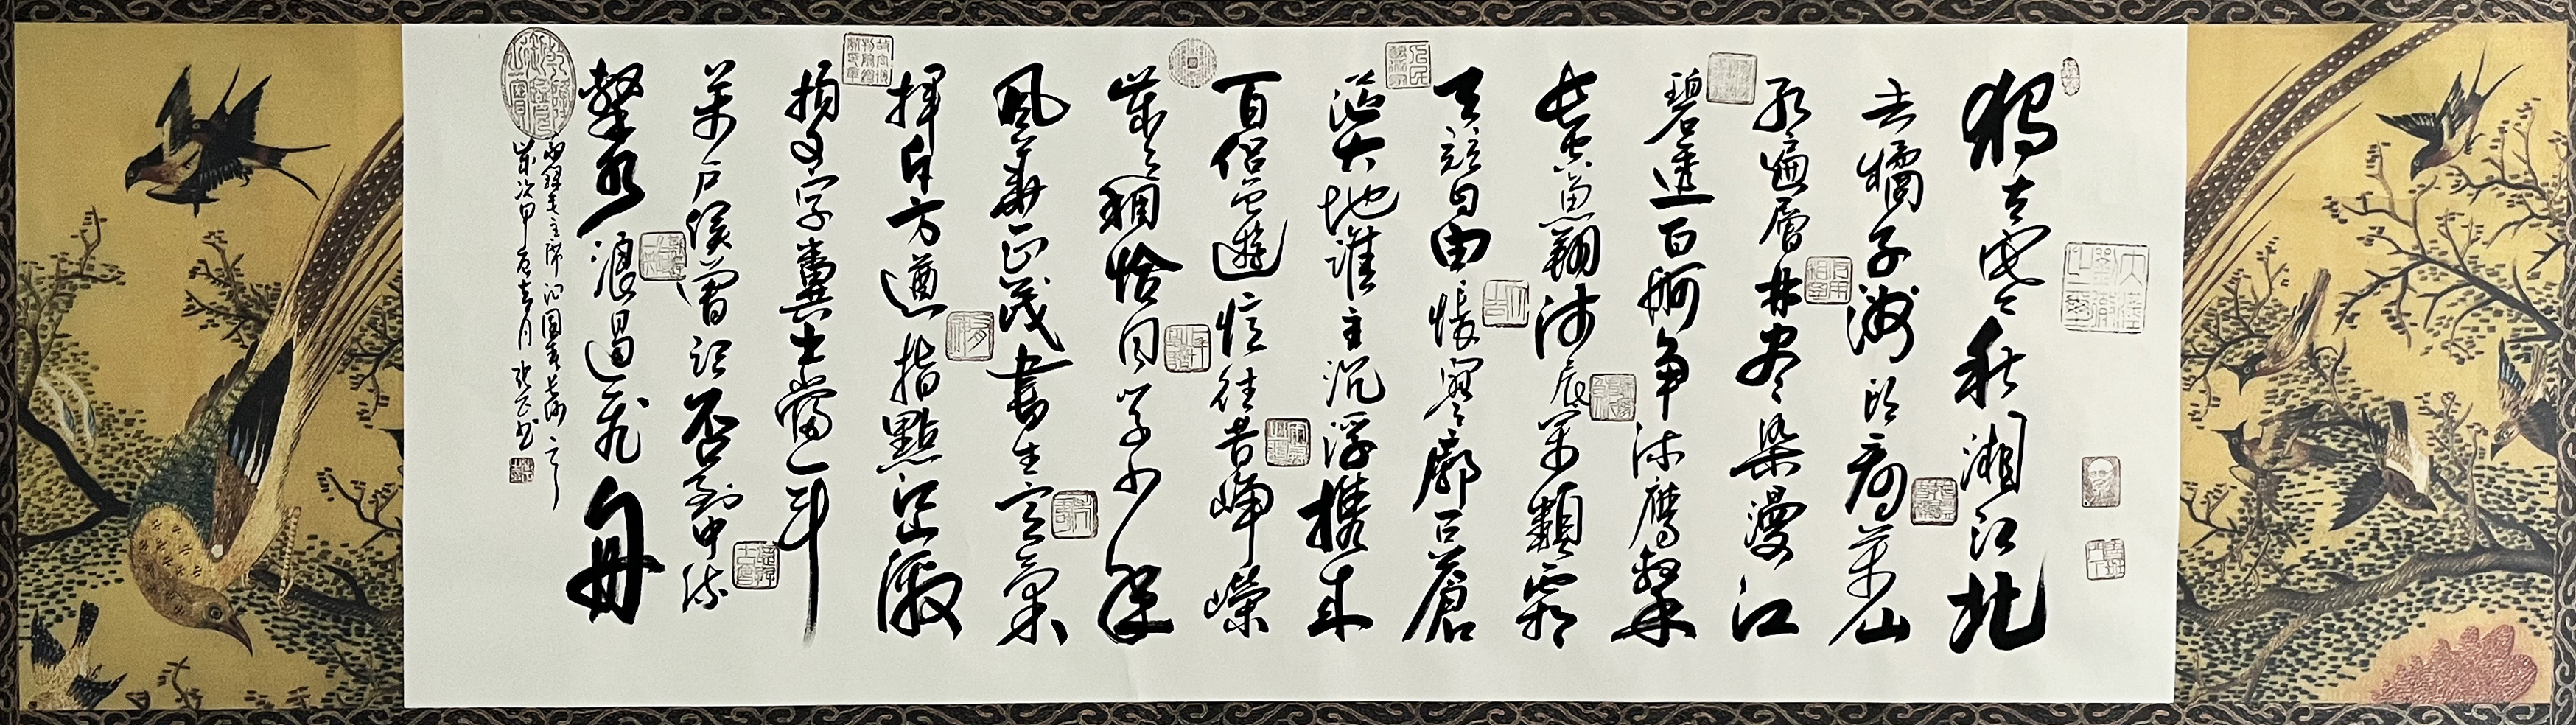 獨立寒秋湘江北
去橘子洲頭看萬山
紅遍層林盡染漫江
碧透百舸争流鷹擊
長空魚翔淺底萬類霜
天競自由悵寥廓問蒼
茫大地誰主沉浮攜來
百侣曾遊憶往昔崢嶸
歲月稠恰同學少年
風華正茂書生意氣
揮斥方遒指點江山激
揚文字糞土當年
萬户侯曾記否到中流
擊水浪遏飛舟
錄毛主席沁園春長沙
歲次甲辰吉月